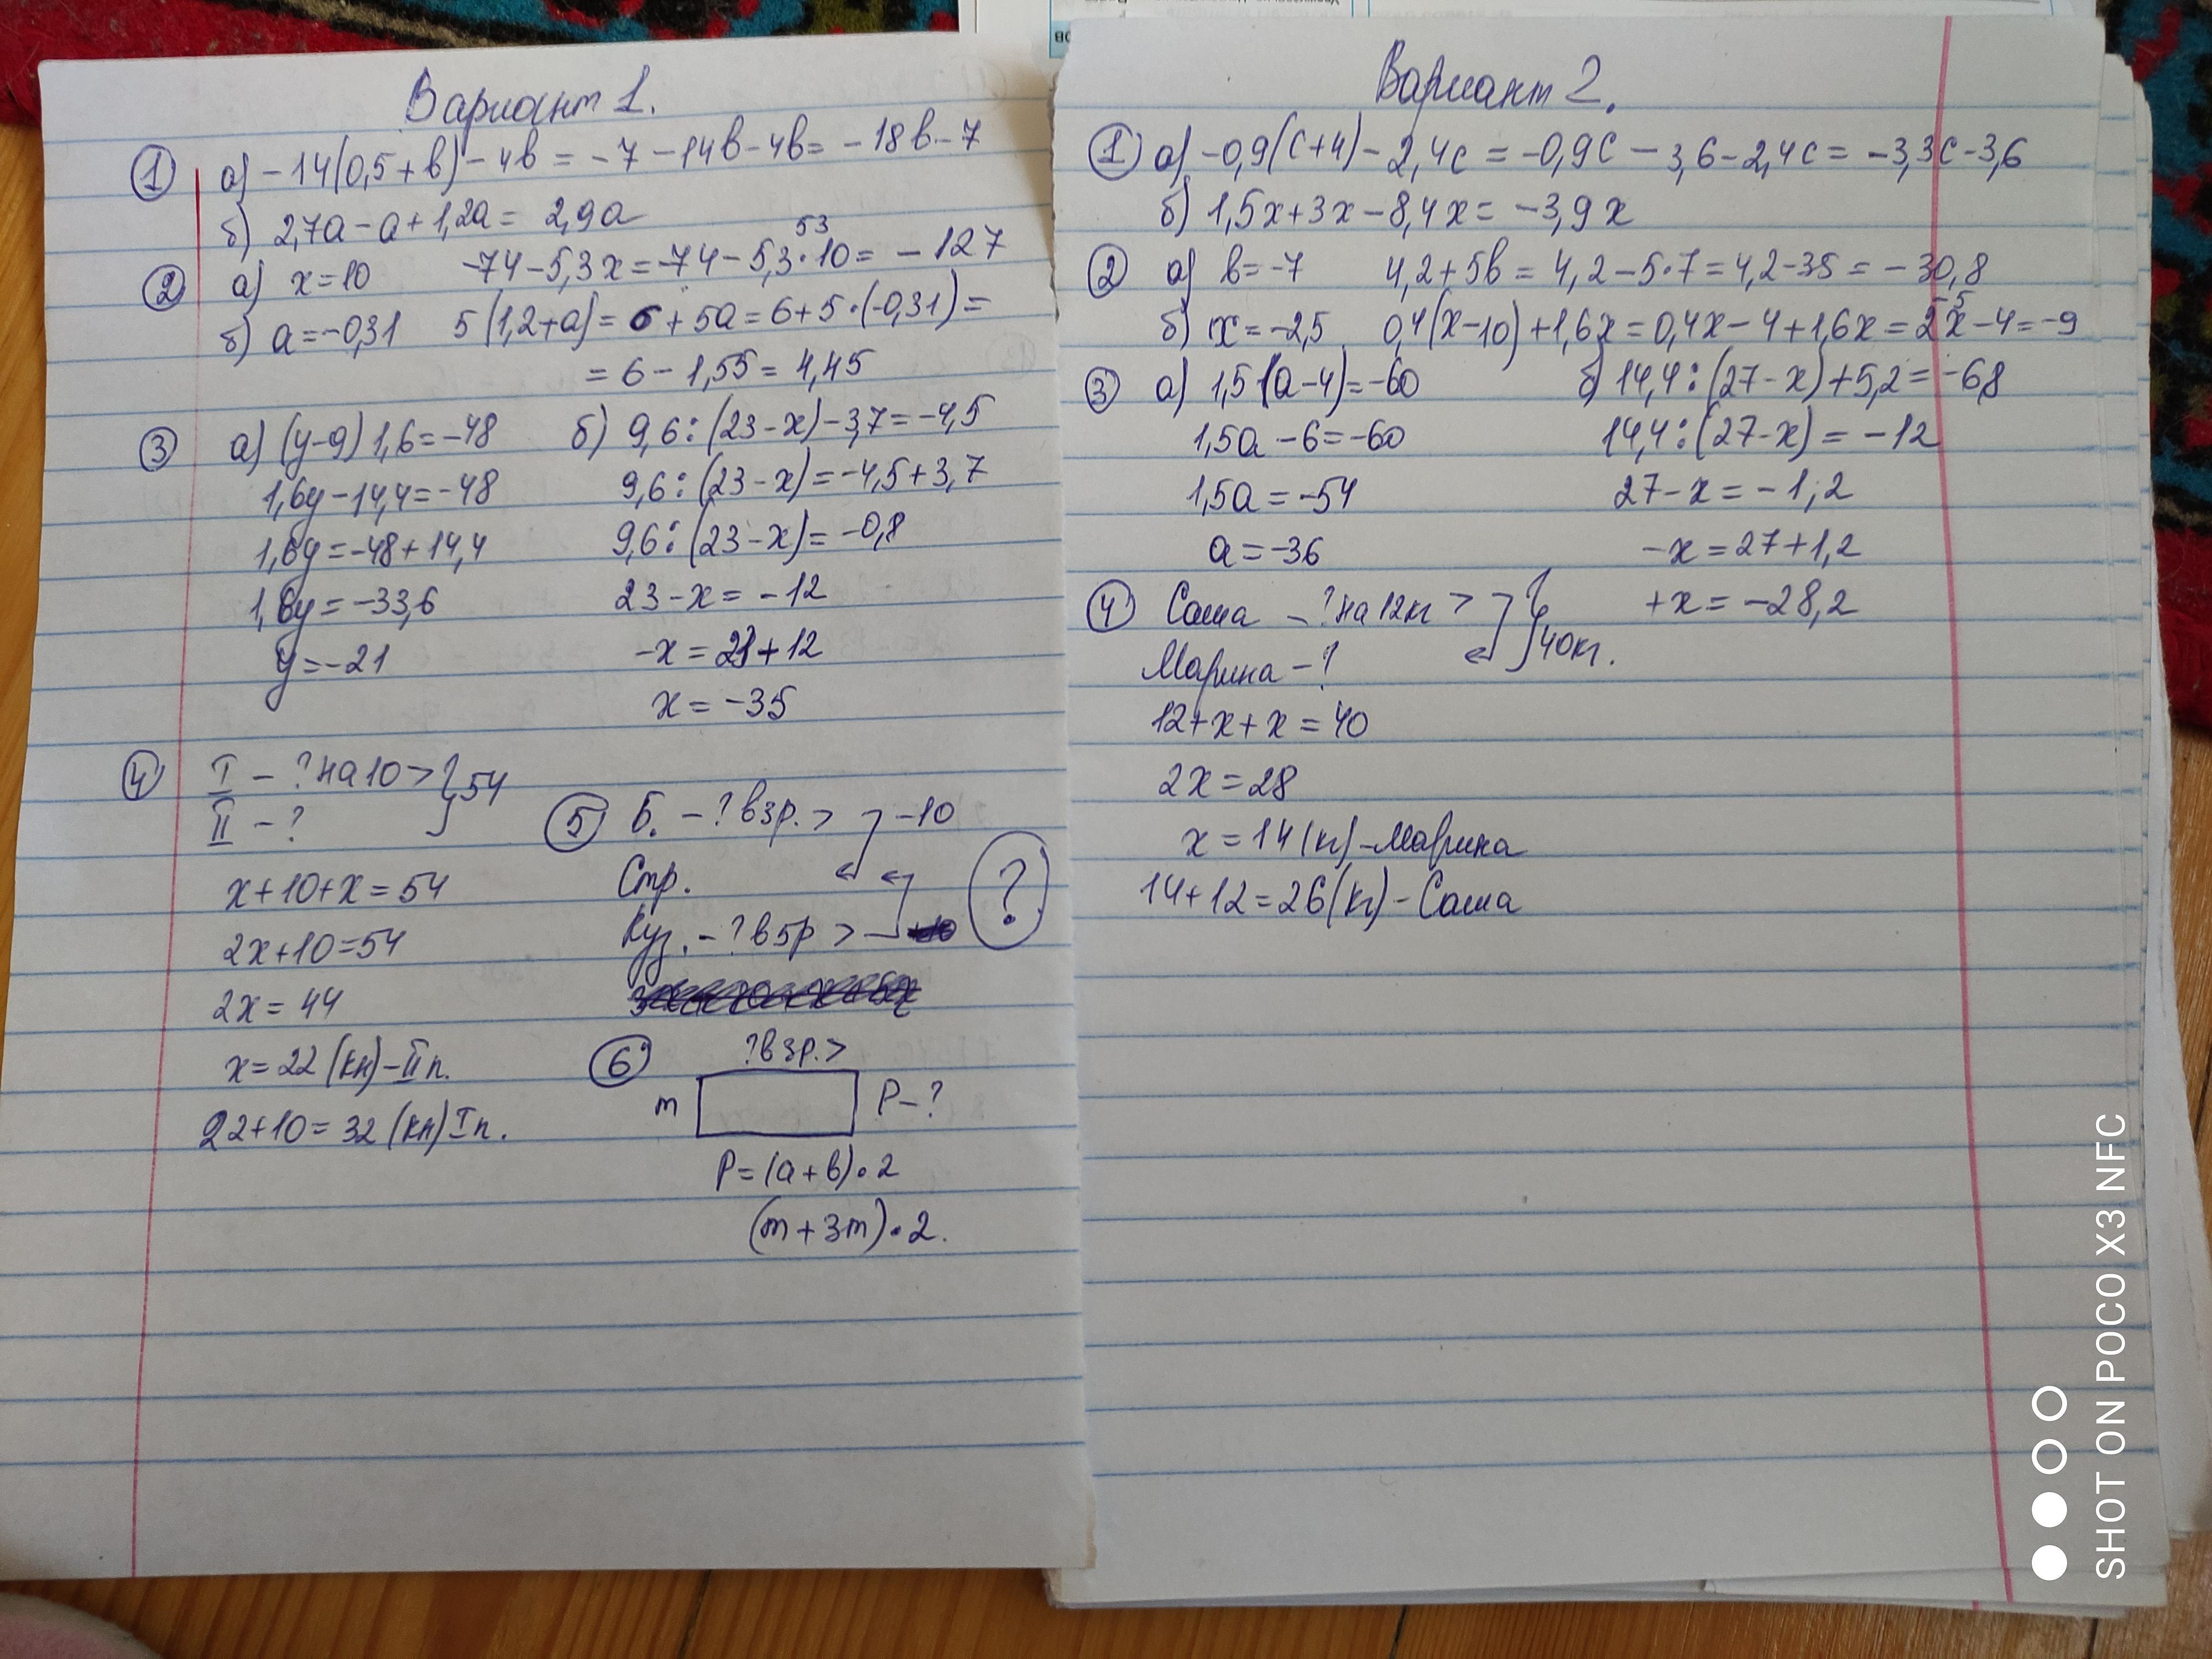 Вариант 1.
① а) -14(0,5+в)-4в = -7-14в-4в= -18в-7
б) 2,7а-а+1,2а= 2,9а
53
② а) х=10 -74-5,3х=-74-5,3·10= -127
б) а=-0,31 5(1,2+а)= 6+5а=6+5·(-0,31)=
= 6-1,55= 4,45
③ а) (у-9)1,6=-48 б) 9,6:(23-х)-3,7=-4,5
1,6у-14,4=-48 9,6:(23-х)=-4,5+3,7
1,6у=-48+14,4 9,6:(23-х)= -0,8
1,6у=-33,6 23-х= -12
у=-21 -х=23+12
х= -35
④ I - ? на 10 > } 54
II - ?
х+10+х=54
2х+10=54
2х= 44
х= 22 (кн)-II п.
22+10= 32 (кн) I п.
⑤ Б. - ? в 3р. > -10
Стр. ?
Куз. - ? в 5р >
⑥ ? в 3р. >
m P-?
P=(а+в)·2
(m+3m)·2.
Вариант 2.
① а) -0,9(с+4)-2,4с = -0,9с-3,6-2,4с= -3,3с-3,6
б) 1,5х+3х-8,4х= -3,9х
② а) в=-7 4,2+5в= 4,2-5·7=4,2-35= -30,8
-5
б) х=-2,5 0,4(х-10)+1,6х=0,4х-4+1,6х=2х-4=-9
③ а) 1,5(а-4)=-60 б) 14,4:(27-х)+5,2=-6,8
1,5а-6=-60 14,4:(27-х)= -12
1,5а=-54 27-х=-1,2
а=-36 -х=27+1,2
+х= -28,2
④ Саша - ? на 12кг > } 40кг.
Марина - ?
12+х+х=40
2х=28
х=14(кг)-Марина
14+12=26(кг)-Саша
SHOT ON POCO X3 NFC